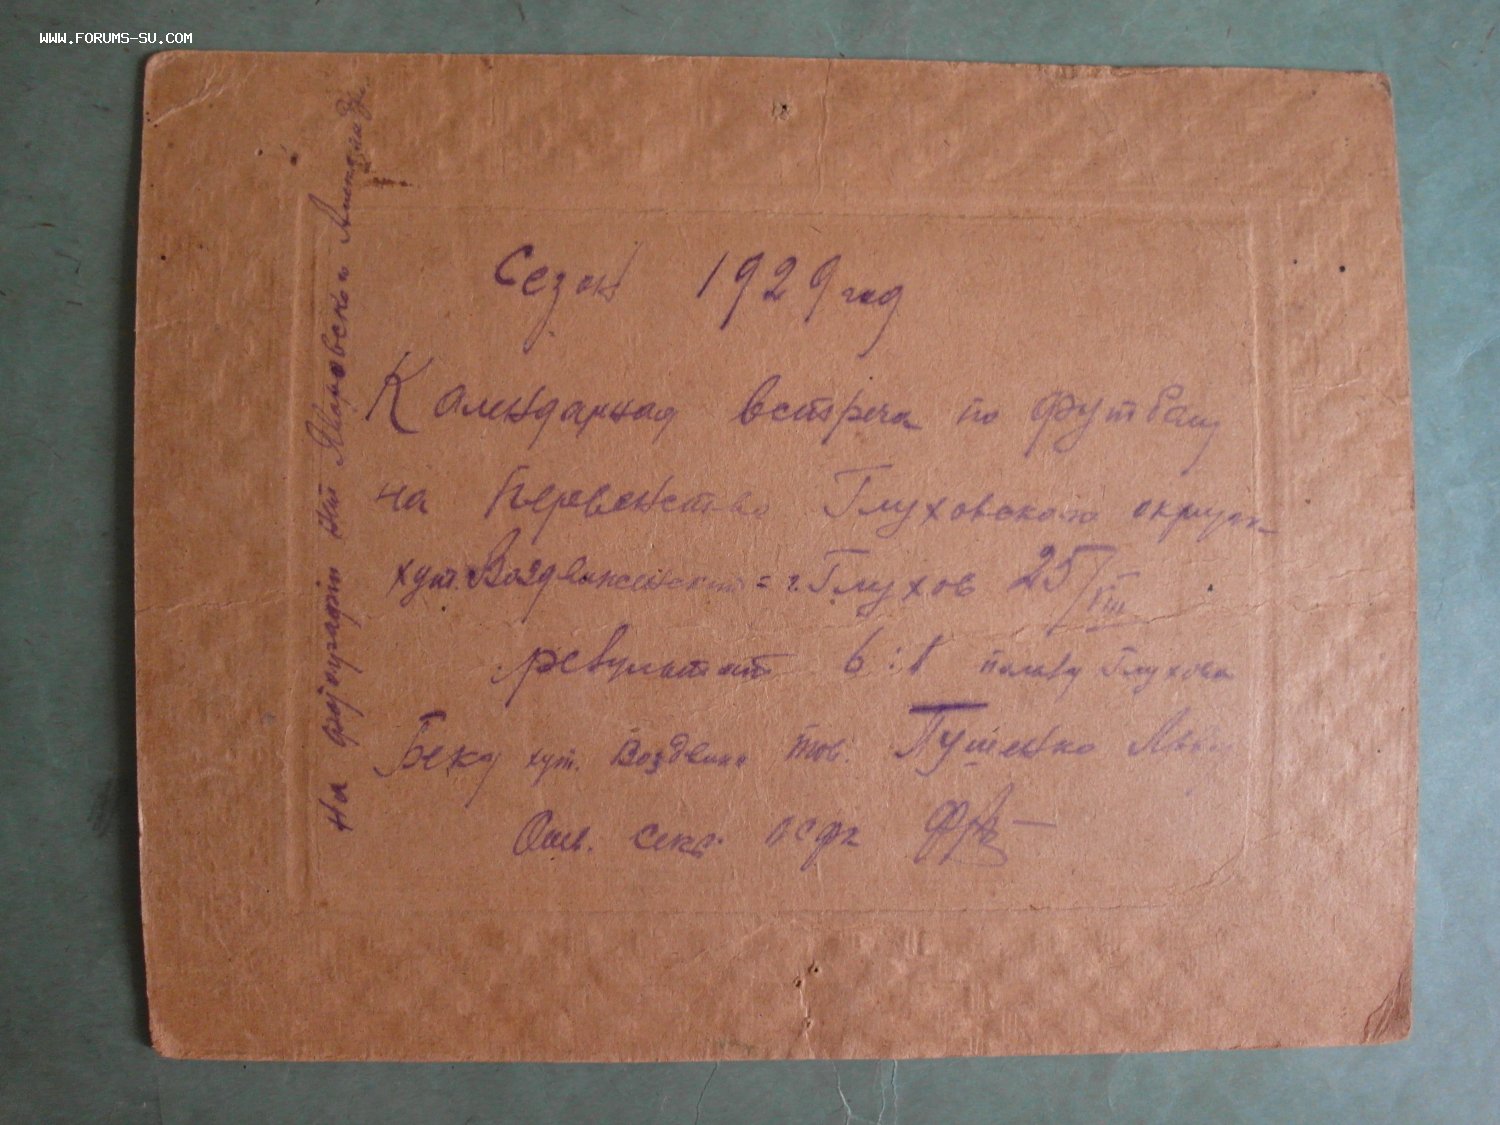 WWW.FORUMS-SU.COM
Сезон 1929 год
Календарная встреча по футболу
на первенство Глуховского округа
хут. Воздвиженский = г. Глухов 25/VIII
результат 6:1 пользу Глухова
Беку хут. Воздвиж тов. Пушенко
Отв. секр. ОСФК
На фотографии нет Яновского